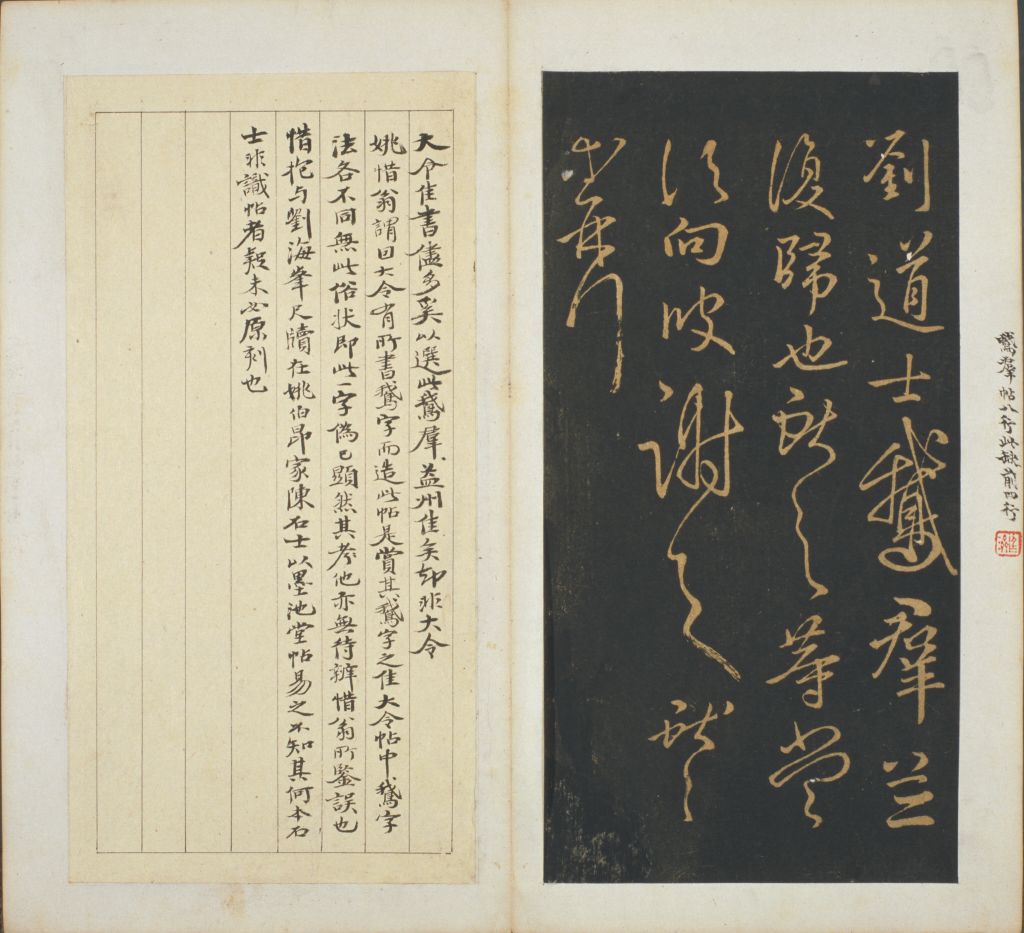 鵞羣帖八行此缺前四行
劉道士鵞羣並
復歸也獻之等當
須向彼謝之獻之
再拜
大令佳書儘多奚以選此鵞羣益州佳矣却非大令
姚惜翁謂因大令有所書鵞字而造此帖是賞其鵞字之佳大令帖中鵞字
法各不同無此俗狀即此一字偽已顯然其考他亦無待辨惜翁所鑒誤也
惜抱与劉海峯尺牘在姚伯昂家陳石士以墨池堂帖易之不知其何本石
士非識帖者疑未必原刻也